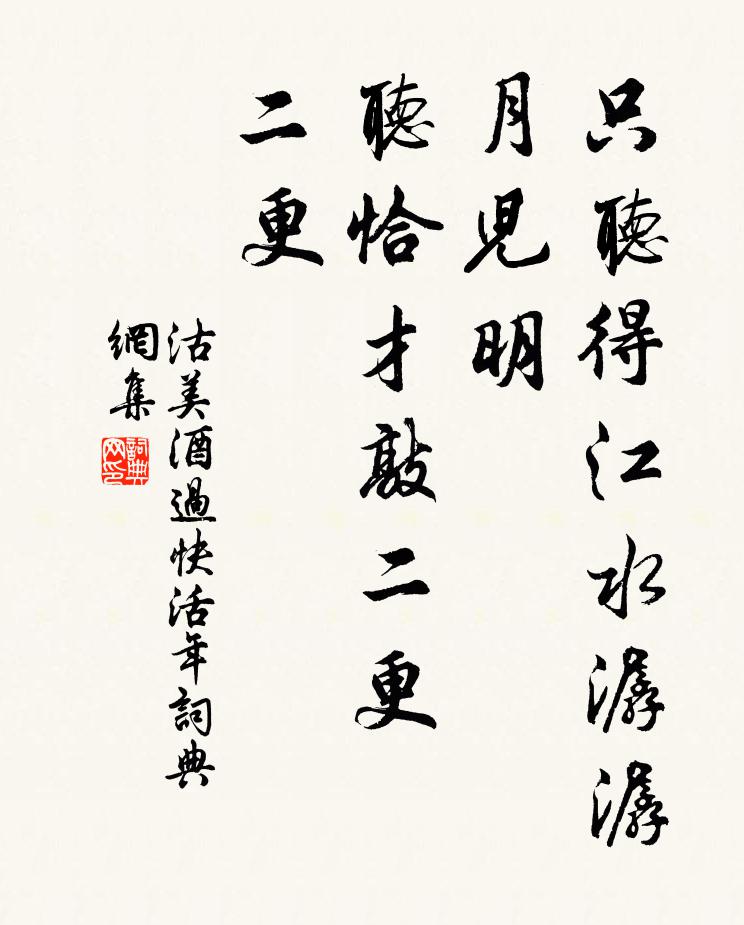 只聽得江水潺潺
月児明
聽恰才敲二更
二更
沽美酒過快活年詞典
網集
詞典
网印